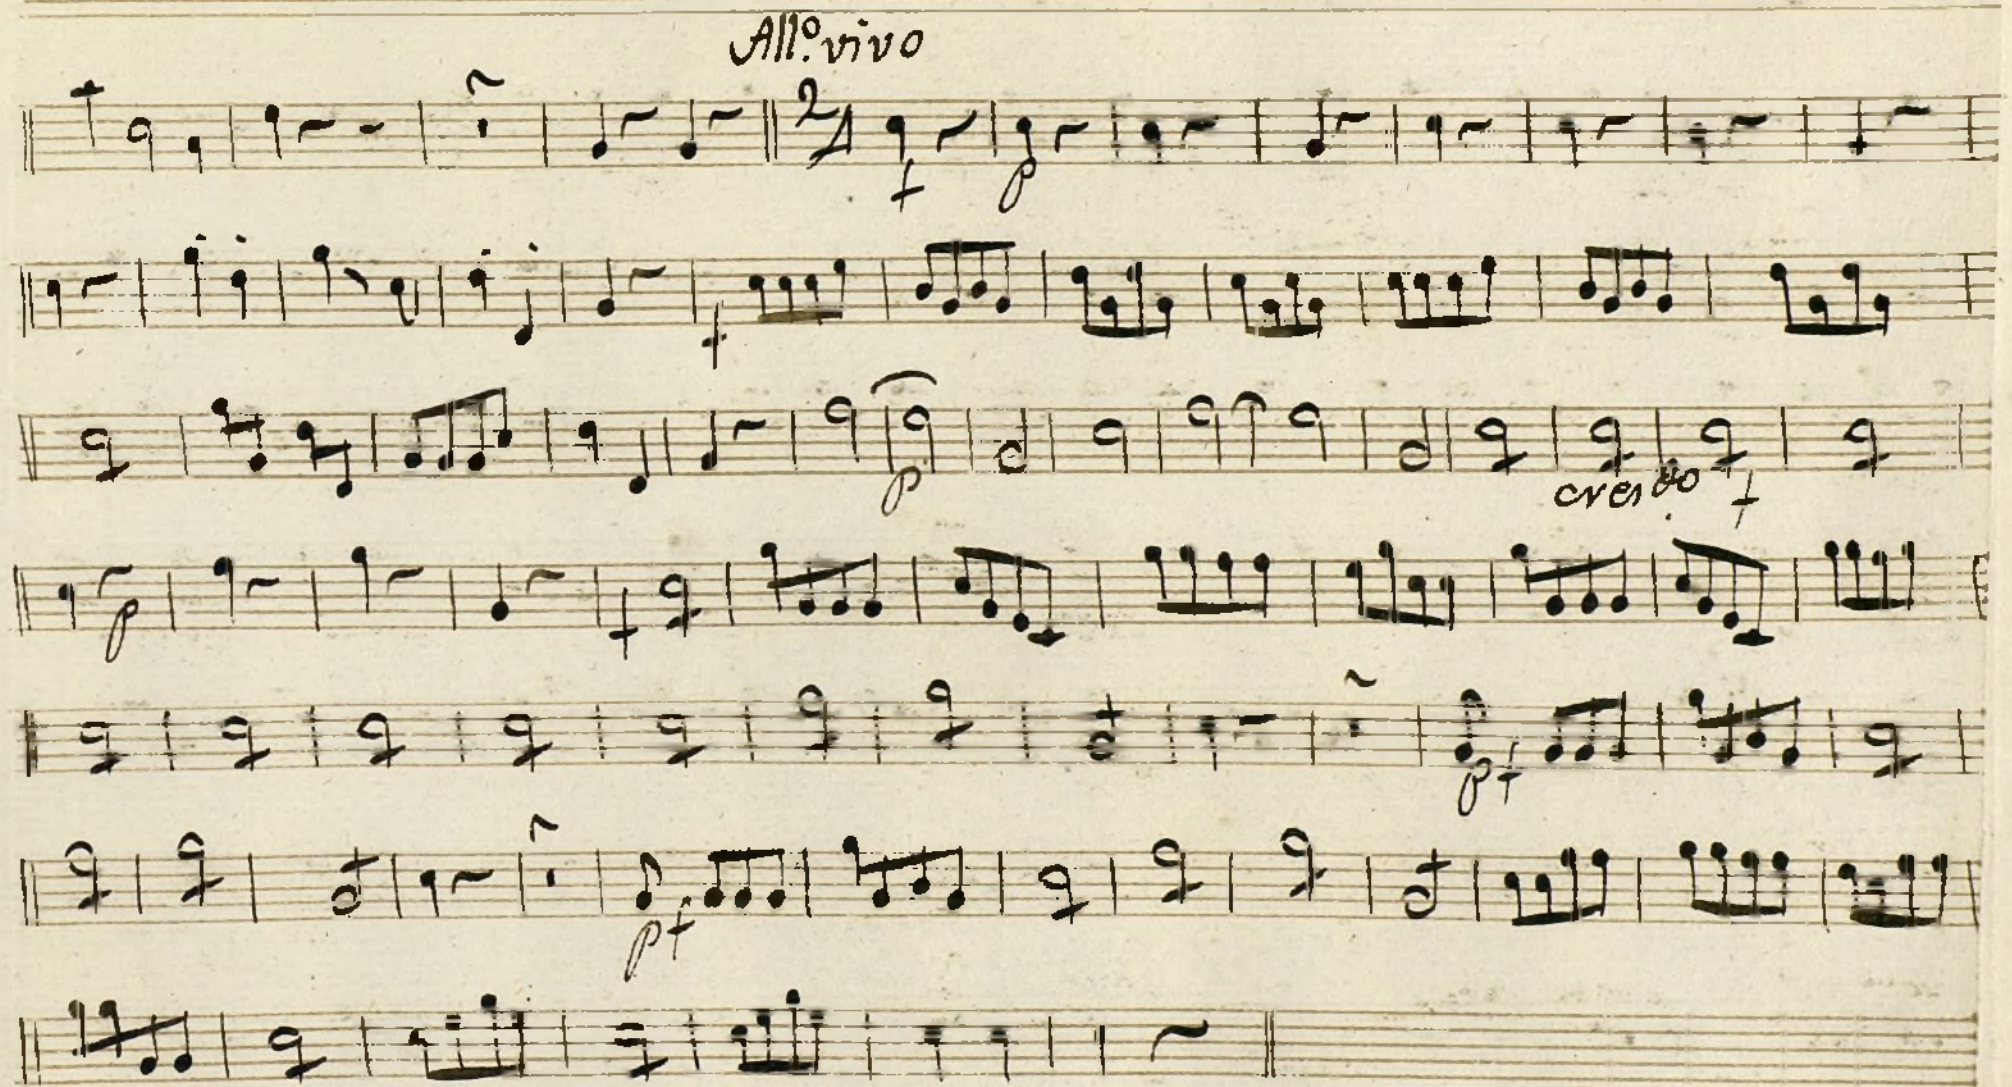 All.º vivo
2/4
f p
f
p cresdo f
p f
p f
p f